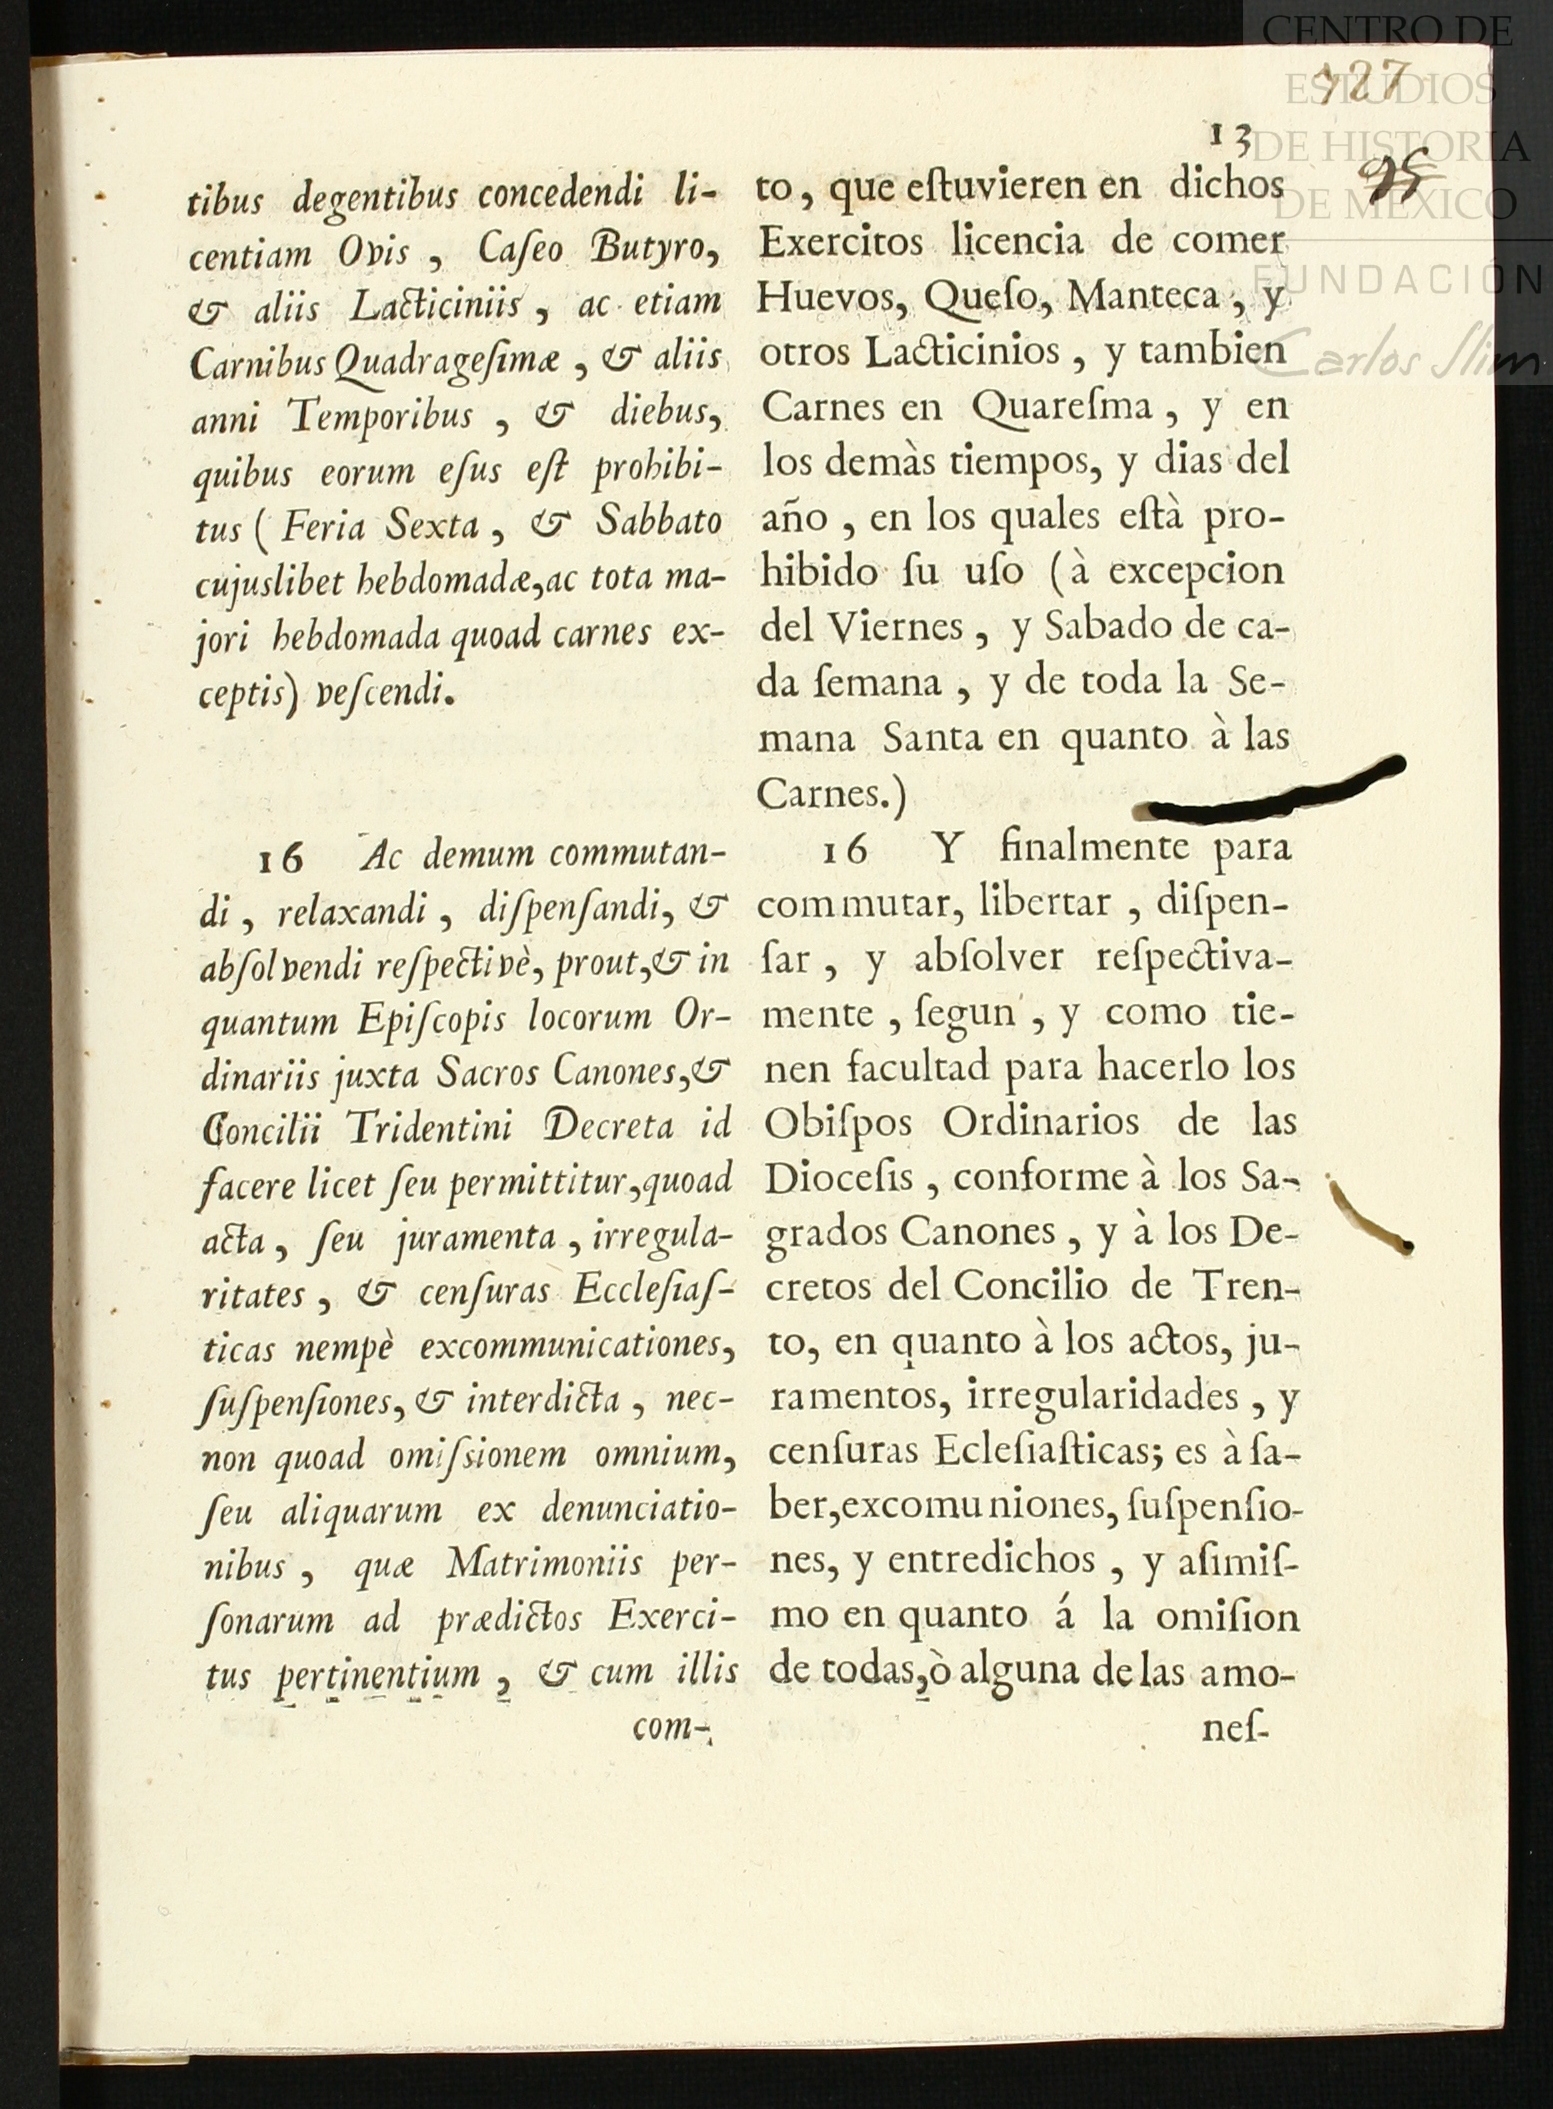 CENTRO DE
ESTUDIOS
DE HISTORIA
DE MEXICO
FUNDACIÓN
Carlos Slim
127
13
tibus degentibus concedendi li-
centiam Ovis , Caſeo Butyro,
& aliis Lacticiniis , ac etiam
Carnibus Quadrageſimæ , & aliis
anni Temporibus , & diebus,
quibus eorum eſus eſt prohibi-
tus ( Feria Sexta , & Sabbato
cujuslibet hebdomadæ,ac tota ma-
jori hebdomada quoad carnes ex-
ceptis) veſcendi.
16 Ac demum commutan-
di , relaxandi , diſpenſandi, &
abſolvendi reſpectivè, prout,& in
quantum Epiſcopis locorum Or-
dinariis juxta Sacros Canones,&
Concilii Tridentini Decreta id
facere licet ſeu permittitur,quoad
acta , ſeu juramenta , irregula-
ritates , & cenſuras Eccleſiaſ-
ticas nempè excommunicationes,
ſuſpenſiones, & interdicta , nec-
non quoad omiſsionem omnium,
ſeu aliquarum ex denunciatio-
nibus , quæ Matrimoniis per-
ſonarum ad prædictos Exerci-
tus pertinentium , & cum illis
com-
to , que eſtuvieren en dichos
Exercitos licencia de comer
Huevos, Queſo, Manteca , y
otros Lacticinios , y tambien
Carnes en Quareſma , y en
los demàs tiempos, y dias del
año , en los quales eſtà pro-
hibido ſu uſo (à excepcion
del Viernes , y Sabado de ca-
da ſemana , y de toda la Se-
mana Santa en quanto à las
Carnes.)
16 Y finalmente para
commutar, libertar , diſpen-
ſar , y abſolver reſpectiva-
mente , ſegun , y como tie-
nen facultad para hacerlo los
Obiſpos Ordinarios de las
Dioceſis , conforme à los Sa-
grados Canones , y à los De-
cretos del Concilio de Tren-
to, en quanto à los actos, ju-
ramentos, irregularidades , y
cenſuras Ecleſiaſticas; es à ſa-
ber,excomuniones, ſuſpenſio-
nes, y entredichos , y aſimiſ-
mo en quanto á la omiſion
de todas,ò alguna de las amo-
neſ-